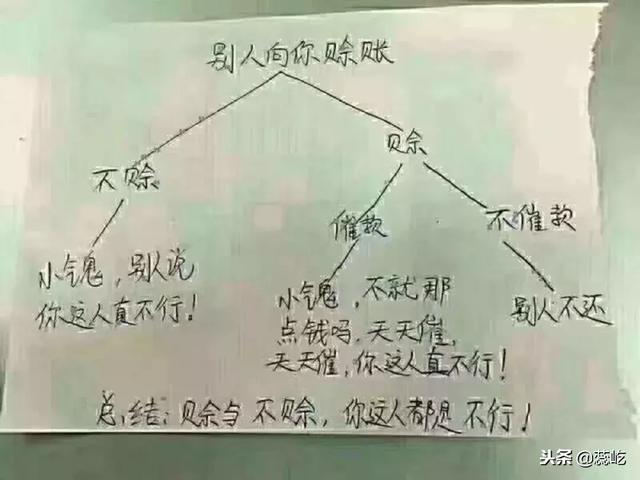 别人向你赊账
不赊
赊
催款
不催款
小气鬼，别人说
你这人真不行！
小气鬼，不就那
点钱吗，天天催，
天天催，你这人真不行！
别人不还
总结：赊与不赊，你这人都是不行！
头条@蕊屹